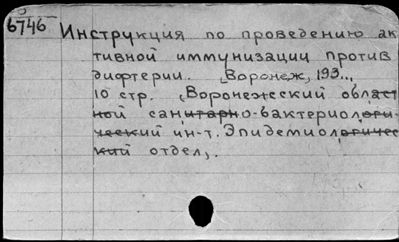 6746 Инструкция по проведению ак
тивной иммунизации против
дифтерии. Воронеж, 193..,
10 стр. (Воронежский област
ной санитарно-бактериологи-
ческий ин-т. Эпидемиологичес
кий отдел,.